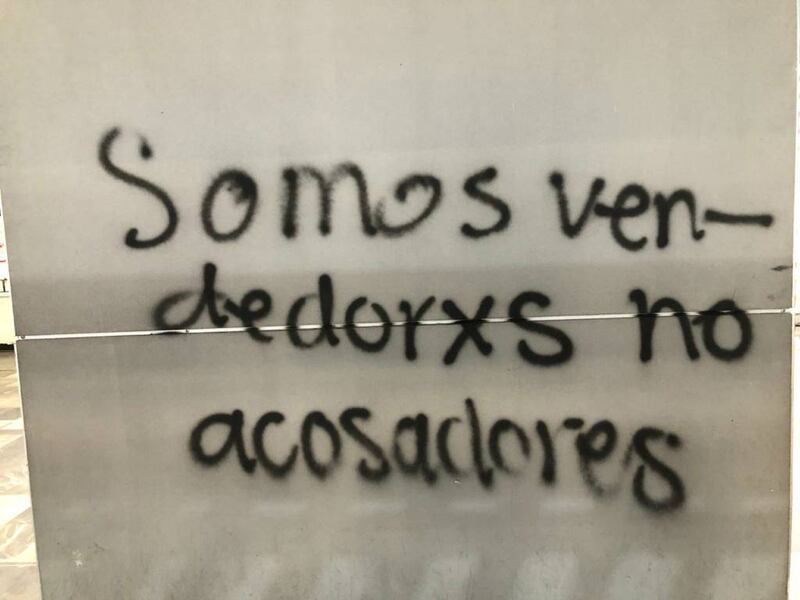 Somos ven-
dedorxs no
acosadores